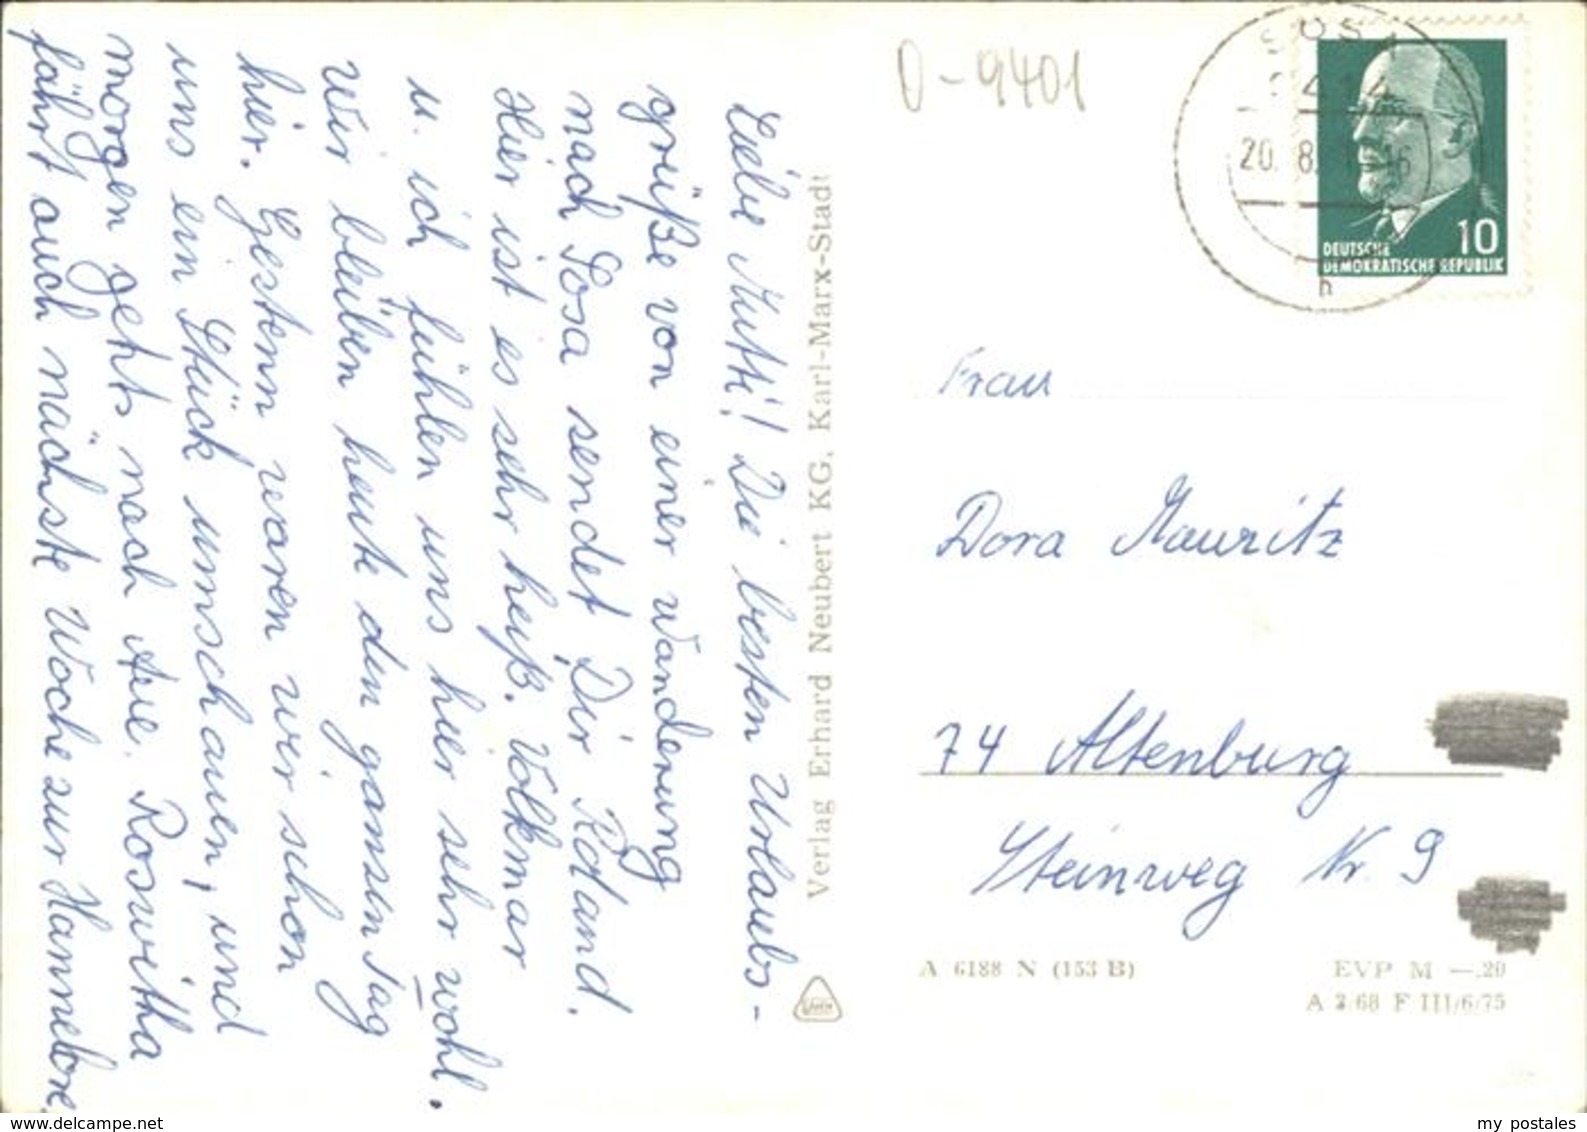 Liebe Mutti! Die besten Urlaubs-
grüße von einer Wanderung
nach Sosa sendet Dir Roland.
Hier ist es sehr heiß. Volkmar
u. ich fühlen uns hier sehr wohl.
Wir bleiben heute den ganzen Tag
hier. Gestern waren wir schon
uns ein Stück umschauen, und
morgen gehts nach Aue. Roswitha
fährt auch nächste Woche zur Hannelore.
Verlag Erhard Neubert KG, Karl-Marx-Stadt
D-9401
SOSA
20. 8.
10
DEUTSCHE
DEMOKRATISCHE REPUBLIK
h
Frau
Dora Mauritz
74 Altenburg
Steinweg Nr. 9
A 6188 N (153 B)
EVP M —.20
A 3/68 F III/6/75
www.delcampe.net
my postales